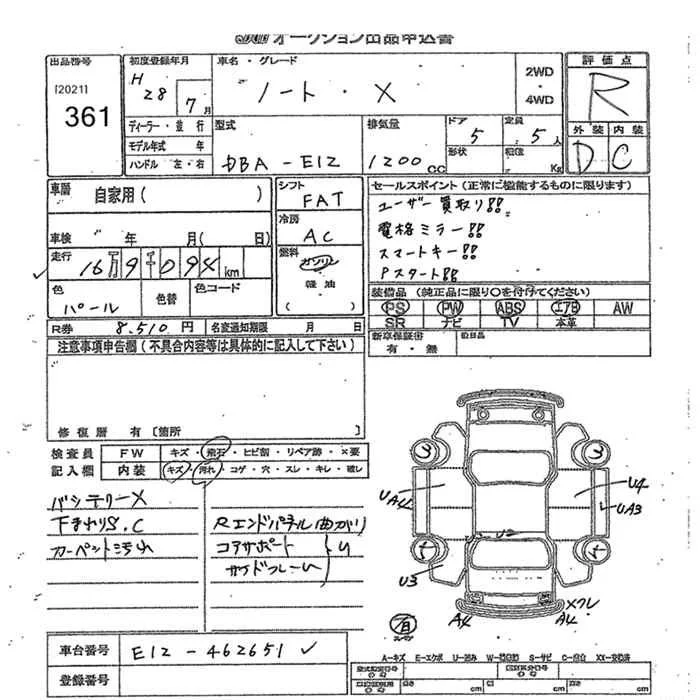 オークション出品申込書
出品番号
[2021]
361
初度登録年月
H
28 7月
車名・グレード
ノート・X
2WD
・
4WD
評価点
R
外装 内装
D C
ディーラー・並行
モデル年式 年
ハンドル 左・右
型式
DBA-E12
排気量
1200CC
ドア
5
形状
定員
5人
積値
Kg
車歴
自家用( )
車検 年 月( 日)
走行
16万9千094km
色
パール
色替
色コード
シフト
FAT
冷房
AC
燃料
ガソリン
軽油
( )
セールスポイント(正常に機能するものに限ります)
ユーザー買取り!!
電格ミラー!!
スマートキー!!
Pスタート!!
装備品(純正品に限り○を付けてください)
PS PW ABS エアB AW
SR ナビ TV 本革
新車保証書
有・無
R券 8.510円 名変通知期限 月 日
注意事項申告欄(不具合内容等は具体的に記入して下さい)
修復歴 有〔箇所 〕
検査員
記入欄
FW キズ・飛石・ヒビ割・リペア跡・×要
内装 キズ・汚れ・コゲ・穴・スレ・キレ・破レ
バッテリーX
下まわりS.C
カーペット汚れ
Rエンドパネル曲がり
コアサポート
サイドフレーム
U
3 3
UA4
U4
UA3
U1 U2
4 4
U3
A4
Xワレ
A4
車台番号 E12-462651
登録番号
A―キズ E―エクボ U―凹み W―補修跡 S―サビ C―腐食 XX―交換済
cm cm cm